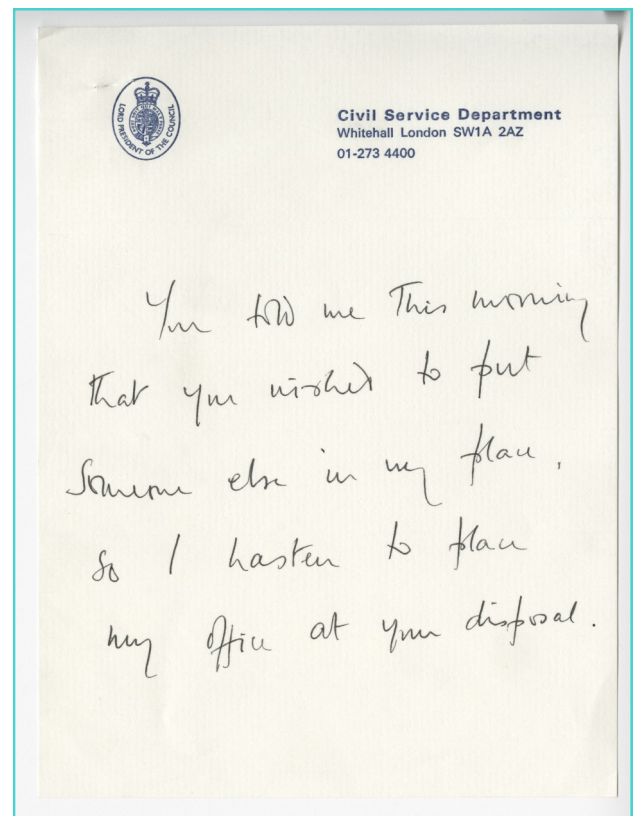 LORD PRESIDENT OF THE COUNCIL
Civil Service Department
Whitehall London SW1A 2AZ
01-273 4400
You told me This morning
that you wished to put
someone else in my place,
so I hasten to place
my office at your disposal.